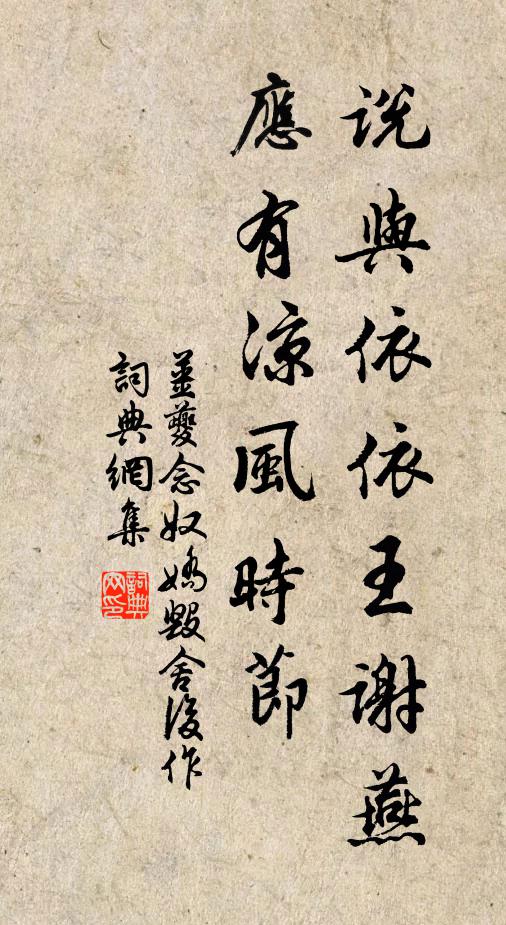 說與依依王謝燕
應有涼風時節
姜夔念奴嬌毀舍後作
詞典網集
詞典
網印